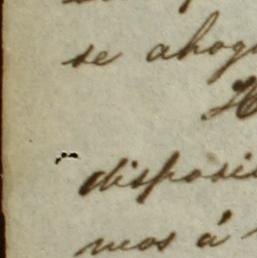 se ahog
H
disposi
mos á